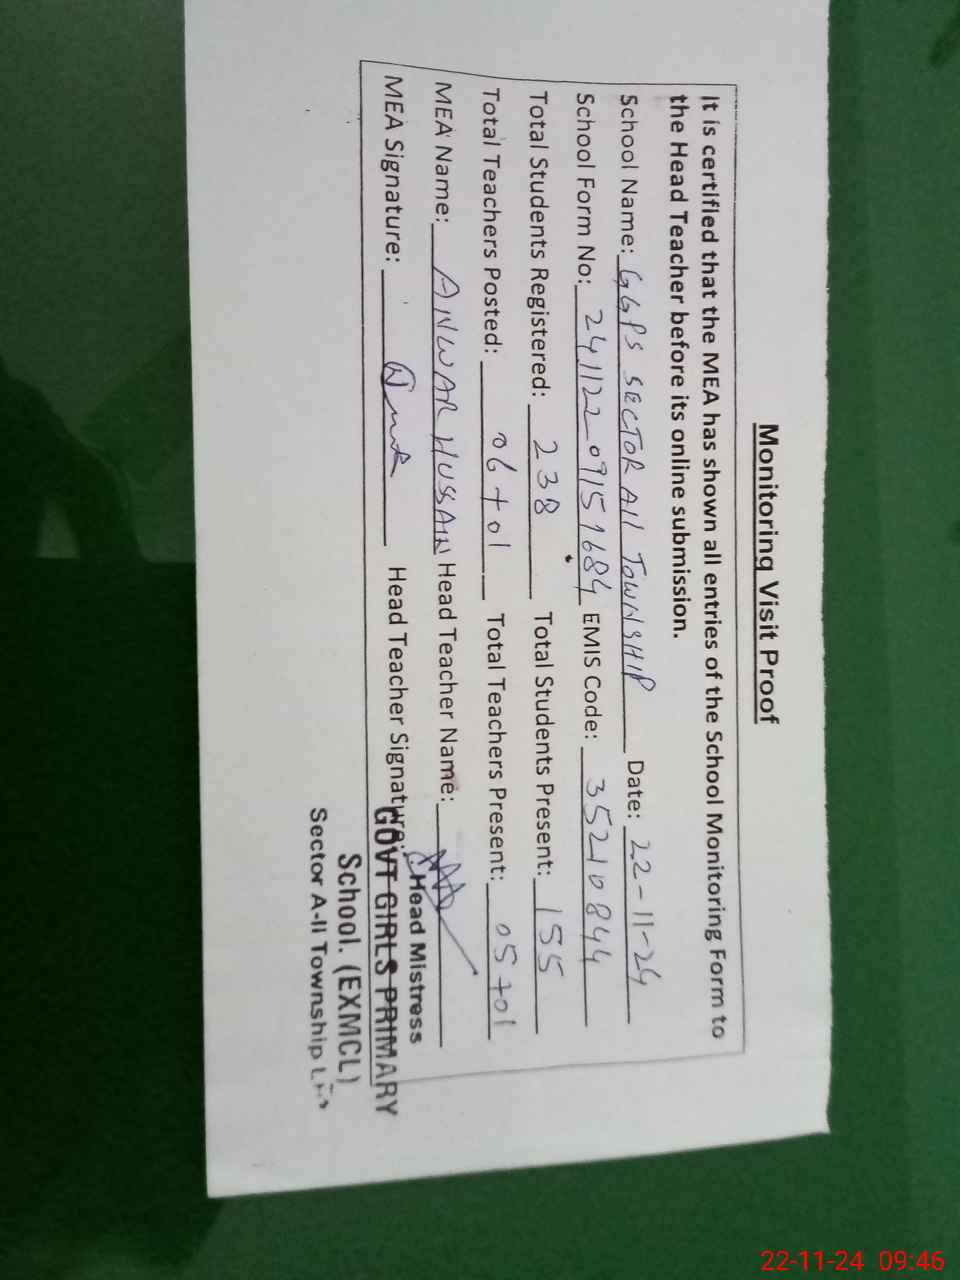 Monitoring Visit Proof
It is certified that the MEA has shown all entries of the School Monitoring Form to
the Head Teacher before its online submission.
School Name: GGPS SECTOR AII TOWNSHIP Date: 22-11-24
School Form No: 241122 09159684 EMIS Code: 35210844
Total Students Registered: 238 Total Students Present: 155
Total Teachers Posted: 06+01 Total Teachers Present: 05+01
MEA Name: ANWAR HUSSAIN Head Teacher Name:
MEA Signature: Head Teacher Signature:
Head Mistress
GOVT GIRLS PRIMARY
School. (EXMCL)
Sector A-II Township
22-11-24 09:46